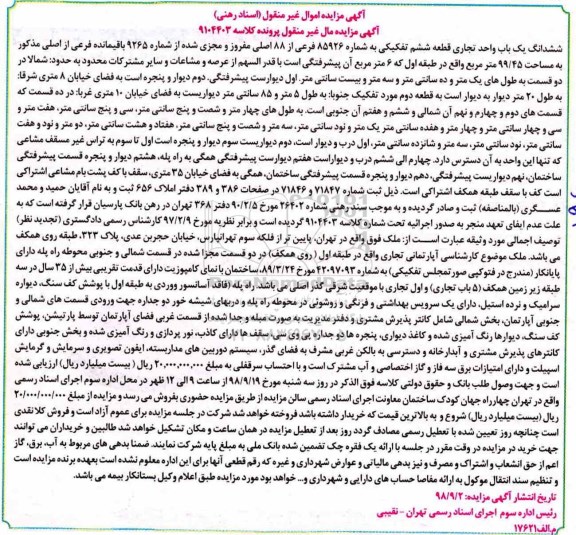 آگهی مزایده اموال غیر منقول (اسناد رهنی)
آگهی مزایده مال غیر منقول پرونده کلاسه ۹۱۰۴۴۰۳
ششدانگ یک باب واحد تجاری قطعه ششم تفکیکی به شماره ۸۵۹۲۶ فرعی از ۸۸ اصلی مفروز و مجزی شده از شماره ۹۲۶۵ باقیمانده فرعی از اصلی مذکور
به مساحت ۹۹/۴۵ متر مربع واقع در طبقه اول که ۶ متر مربع آن پیشرفتگی است با قدر السهم از عرصه و مشاعات و سایر مشترکات محدود به حدود: شمالا در
دو قسمت به طول های یک متر و ده سانتی متر و سه متر و بیست سانتی متر. اول دیوارست پیشرفتگی. دوم دیوار و پنجره است به فضای خیابان ۸ متری شرقا:
به طول ۲۰ متر دیوار به دیوار است به قطعه دوم مورد تفکیک جنوبا: به طول ۵ متر و ۸۵ سانتی متر دیواریست به فضای خیابان ۱۰ متری غربا: در ده قسمت که
قسمت های دوم و چهارم و نهم آن شمالی و ششم و هفتم آن جنوبی است. به طول های چهار متر و شصت و پنج سانتی متر، سی و پنج سانتی متر، هفت متر و
سی و چهار سانتی متر و چهار متر و هفده سانتی متر یک متر و نود سانتی متر، سه متر و شصت و پنج سانتی متر، هفتاد و هشت سانتی متر، دو متر و نود و هفت
سانتی متر، نود سانتی متر، سه متر و شانزده سانتی متر، اول درب و دیوار است، دوم دیواریست سوم دیوار و پنجره است اول تا سوم به تراس غیر مسقف مشاعی
که تنها این واحد به آن دسترس دارد. چهارم الی ششم درب و دیواراست هفتم دیواریست پیشرفتگی همگی به راه پله، هشتم دیوار و پنجره قسمت پیشرفتگی
ساختمان، نهم دیواریست پیشرفتگی، دهم دیوار و پنجره قسمت پیشرفتگی ساختمان، همگی به فضای خیابان ۳۵ متری، سقف با کف پشت بام مشاعی اشتراکی
است کف با سقف طبقه همکف اشتراکی است. ذیل ثبت شماره ۷۱۸۴۷ و ۷۱۸۴۶ در صفحات ۳۸۶ و ۳۸۹ دفتر املاک ۶۵۶ ثبت و به نام آقایان حمید و محمد
عسگری (بالمناصفه) ثبت و صادر گردیده و به موجب سند رهنی شماره ۲۶۴۰۳ مورخ ۹۰/۲/۵ دفتر ۳۶۸ تهران در رهن بانک پارسیان قرار گرفته است که به
علت عدم ایفای تعهد منجر به صدور اجرائیه تحت شماره کلاسه ۹۱۰۴۴۰۳ گردیده است و برابر نظریه مورخ ۹۷/۲/۹ کارشناس رسمی دادگستری (تجدید نظر)
توصیف اجمالی مورد وثیقه عبارت است از: ملک فوق واقع در تهران، پایین تر از فلکه سوم تهرانپارس، خیابان حجربن عدی، پلاک ۳۲۳، طبقه روی همکف
می باشد. ملک موضوع کارشناسی آپارتمانی تجاری واقع در طبقه اول (روی همکف) در دو قسمت مجزا شده در قسمت شمالی و جنوبی محوطه راه پله دارای
پایانکار (مندرج در فتوکپی صورتمجلس تفکیکی) به شماره ۴۲۰۹۷۰۹۳ مورخ ۸۹/۳/۲۴، ساختمان با نمای کامپوزیت دارای قدمت تقریبی بیش از ۳۵ سال در سه
طبقه زیر زمین همکف (۵ باب تجاری) و اول تجاری با موقعیت شرقی گذر اصلی می باشد. راه پله (فاقد آسانسور ووردی به طبقه اول با پوشش کف سنگ، دیواره
سرامیک و نرده استیل، دارای یک سرویس بهداشتی و فرنگی و زوشوئی در محوطه راه پله و دربهای شیشه خور دو جداره جهت ورودی قسمت های شمالی و
جنوبی آپارتمان، بخش شمالی شامل کانتر پذیرش مشتری و دفتر مدیریت به صورت مبله و جدا شده از قسمت غربی فضای آپارتمان توسط پارتیشن، پوشش
کف سنگ، دیوارها رنگ آمیزی شده و کاغذ دیواری، پنجره ها دو جداره پی وی سی، سقف ها دارای کاذب، نور پردازی و رنگ آمیزی شده و بخش جنوبی دارای
کانترهای پذیرش مشتری و آبدارخانه و دسترسی به بالکن غربی مشرف به فضای گذر، سیستم دوربین های مداربسته، آیفون تصویری و سرمایش و گرمایش
اسپیلت و دارای امتیازات برق سه فاز و گاز اختصاصی و آب مشترک است و با احتساب سرقفلی به مبلغ ۲۰,۰۰۰,۰۰۰,۰۰۰ ریال ( بیست میلیارد ریال) ارزیابی شده
است و جهت وصول طلب بانک و حقوق دولتی کلاسه فوق الذکر در روز سه شنبه مورخ ۹۸/۹/۱۹ از ساعت ۹ الی ۱۲ ظهر در محل اداره سوم اجرای اسناد رسمی
واقع در تهران چهارراه جهان کودک ساختمان معاونت اجرای اسناد رسمی سالن مزایده از طریق مزایده حضوری بفروش می رسد و مزایده از مبلغ ۲۰/۰۰۰/۰۰۰/۰۰۰
ریال (بیست میلیارد ریال) شروع و به بالاترین قیمت که خریدار داشته باشد فروخته خواهد شد شرکت در جلسه مزایده برای عموم آزاد است و فروش کلا نقدی
است چنانچه روز تعیین شده با تعطیل رسمی مصادف گردد روز بعد از تعطیل مزایده در همان ساعت و مکان تشکیل خواهد شد طالبین و خریداران می توانند
جهت خرید در مزایده در وقت مقرر در جلسه با ارائه یک فقره چک تضمین شده بانک ملی به مبلغ پایه شرکت نمایند. ضمنا بدهی های مربوط به آب، برق، گاز
اعم از حق انشعاب و اشتراک و مصرف و نیز بدهی مالیاتی و عوارض شهرداری و غیره که رقم قطعی آنها برای این اداره معلوم نشده است بعهده برنده مزایده است
و تنظیم سند انتقال موکول به ارائه مفاصا حساب های دارایی و شهرداری و... خواهد بود مورد مزایده طبق اعلام وکیل بستانکار بیمه می باشد.
تاریخ انتشار آگهی مزایده: ۹۸/۹/۲
رئیس اداره سوم اجرای اسناد رسمی تهران - نقیبی
م.الف۱۷۶۲۱